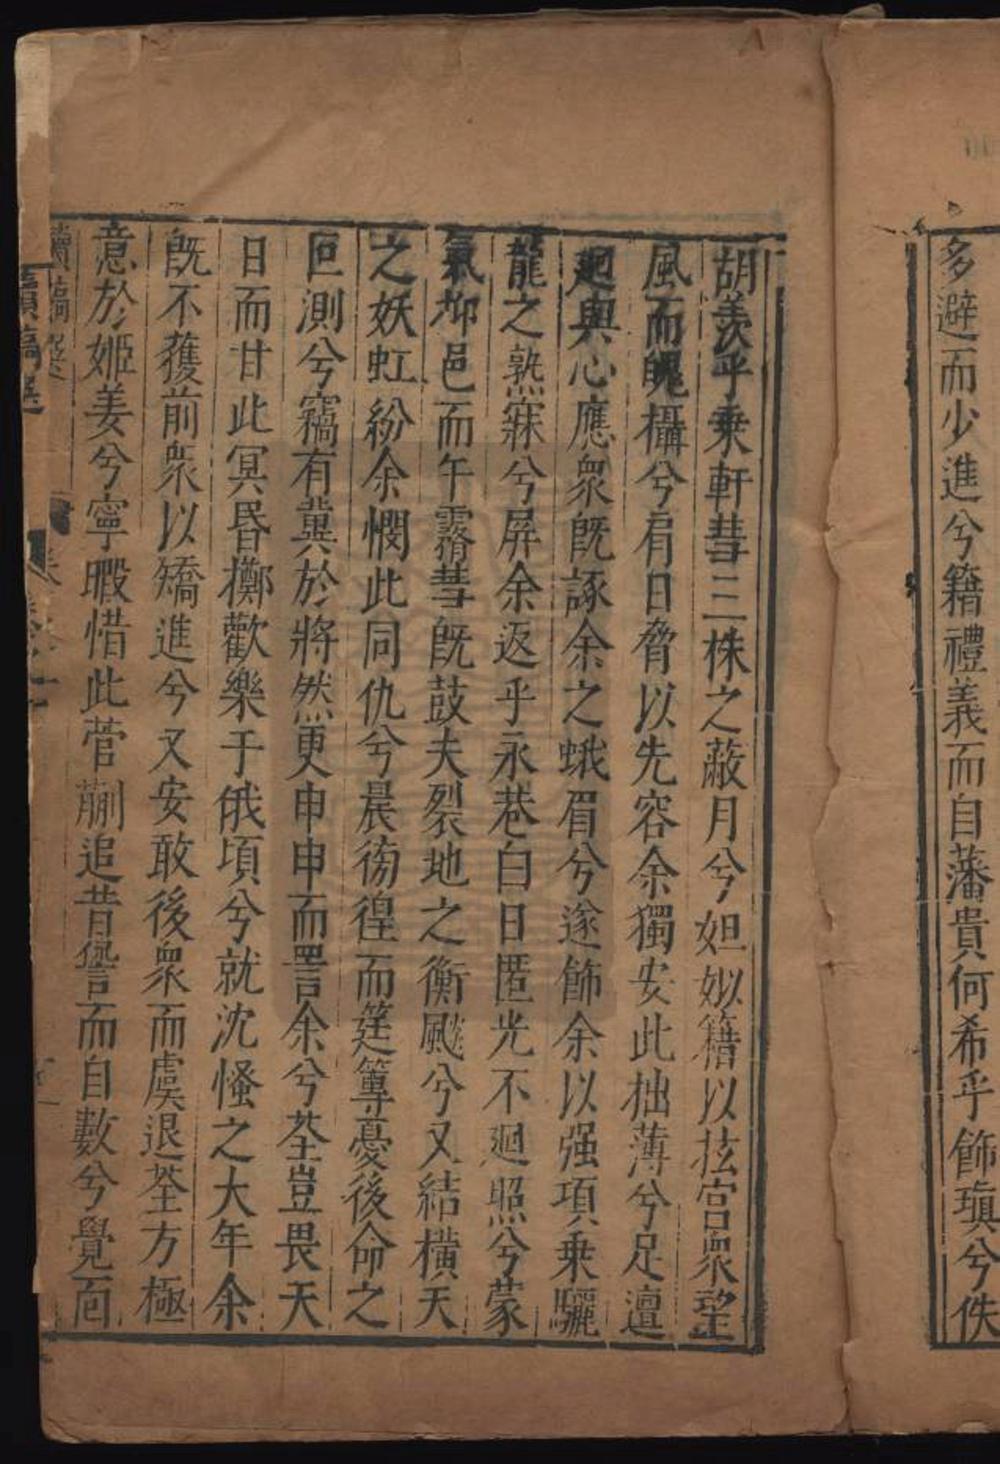 多避而少進兮籍禮義而自藩貴何希乎飾瑱兮佚
胡羨乎乗軒彗三株之蔽月兮妲姒籍以抎宫衆望
風而魄攝兮肩日脅以先容余獨安此拙薄兮足邅
廻與心應衆既諑余之蛾眉兮遂飾余以强項乗驪
龍之熟寐兮屏余返乎永巷白日匿光不廻照兮蒙
氣抑邑而午霿彗既鼓夫裂地之衡飈兮又結橫天
之妖虹紛余憫此同仇兮晨徬徨而筳篿憂後命之
叵測兮竊有冀於將然更申申而詈余兮荃豈畏天
日而甘此冥昏擲歡樂于俄頃兮就沈慅之大年余
既不獲前衆以矯進兮又安敢後衆而虞退荃方極
意於姬姜兮寧暇惜此菅蒯追昔諐而自數兮覺面